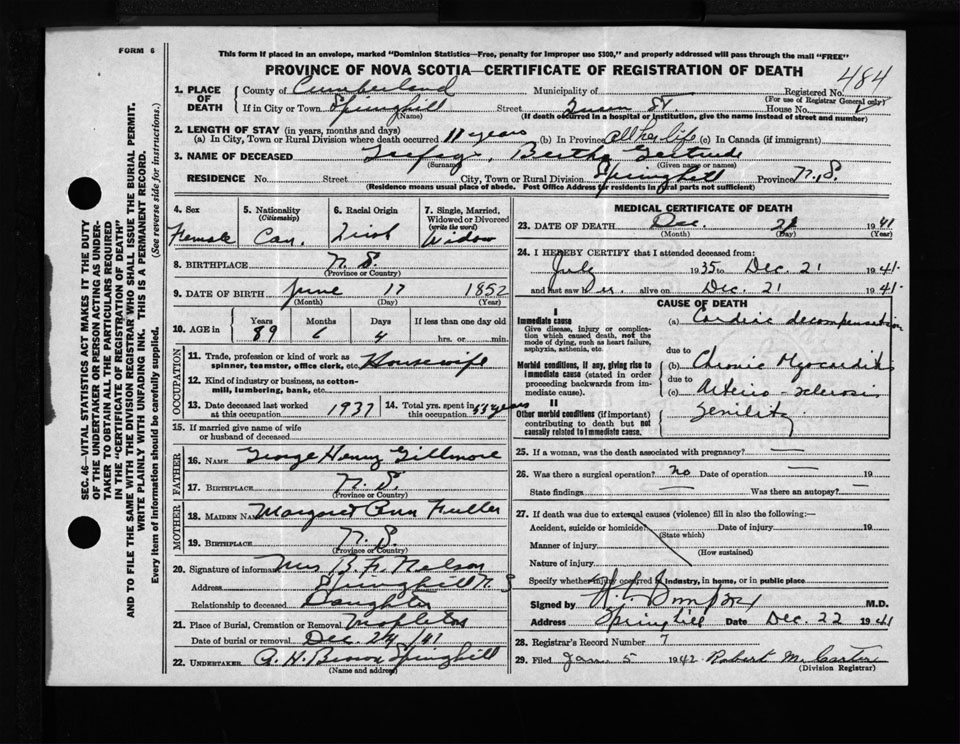 FORM 6
This form if placed in an envelope, marked "Dominion Statistics—Free, penalty for improper use $300," and properly addressed will pass through the mail "FREE"
PROVINCE OF NOVA SCOTIA—CERTIFICATE OF REGISTRATION OF DEATH
484
SEC. 46—VITAL STATISTICS ACT MAKES IT THE DUTY
OF THE UNDERTAKER OR PERSON ACTING AS UNDER-
TAKER TO OBTAIN ALL THE PARTICULARS REQUIRED
IN THE "CERTIFICATE OF REGISTRATION OF DEATH"
AND TO FILE THE SAME WITH THE DIVISION REGISTRAR WHO SHALL ISSUE THE BURIAL PERMIT.
WRITE PLAINLY WITH UNFADING INK. THIS IS A PERMANENT RECORD.
Every item of information should be carefully supplied. (See reverse side for instructions.)
1. PLACE OF DEATH County of Cumberland Municipality of Registered No.
(For use of Registrar General only)
If in City or Town Springhill Street Queen St. House No.
(Name) (If death occurred in a hospital or institution, give the name instead of street and number)
2. LENGTH OF STAY (in years, months and days)
(a) In City, Town or Rural Division where death occurred 11 years (b) In Province all her life (c) In Canada (if immigrant)
3. NAME OF DECEASED Bertha Gertrude
(Surname) (Given name or names)
RESIDENCE No. Street City, Town or Rural Division Springhill Province N.S.
(Residence means usual place of abode. Post Office Address for residents in rural parts not sufficient)
4. Sex Female
5. Nationality (Citizenship) Can.
6. Racial Origin Irish
7. Single, Married, Widowed or Divorced (write the word) Widow
8. BIRTHPLACE N. S.
(Province or Country)
9. DATE OF BIRTH June 17 1852
(Month) (Day) (Year)
10. AGE in Years 89 Months 6 Days 4 If less than one day old hrs. or min.
OCCUPATION
11. Trade, profession or kind of work as spinner, teamster, office clerk, etc. Housewife
12. Kind of industry or business, as cotton-mill, lumbering, bank, etc.
13. Date deceased last worked at this occupation 1937 14. Total yrs. spent in this occupation 53 years
15. If married give name of wife or husband of deceased
FATHER
16. NAME George Henry Gillmore
17. BIRTHPLACE N. S.
(Province or Country)
MOTHER
18. MAIDEN NAME Margaret Ann Fuller
19. BIRTHPLACE N. S.
(Province or Country)
20. Signature of informant Mrs B. F. Nelson
Address Springhill N. S
Relationship to deceased Daughter
21. Place of Burial, Cremation or Removal Mapleton
Date of burial or removal Dec. 24/41
22. UNDERTAKER A. H. Brown Springhill
(Name and address)
MEDICAL CERTIFICATE OF DEATH
23. DATE OF DEATH Dec. 21 1941
(Month) (Day) (Year)
24. I HEREBY CERTIFY that I attended deceased from:
July 1935 to Dec. 21 1941.
and last saw her alive on Dec. 21 1941.
CAUSE OF DEATH
I
Immediate cause
Give disease, injury or complication which caused death, not the mode of dying, such as heart failure, asphyxia, asthenia, etc.
(a) Cardiac decompensation
due to
Morbid conditions, if any, giving rise to immediate cause (stated in order proceeding backwards from immediate cause).
(b) Chronic Myocarditis
due to
(c) Arterio sclerosis
II
Other morbid conditions (if important) contributing to death but not causally related to immediate cause.
Senility
25. If a woman, was the death associated with pregnancy? —
26. Was there a surgical operation? no Date of operation — 19
State findings — Was there an autopsy? —
27. If death was due to external causes (violence) fill in also the following:—
Accident, suicide or homicide? Date of injury 19
(State which)
Manner of injury
(How sustained)
Nature of injury
Specify whether injury occurred in industry, in home, or in public place
Signed by M.D.
Address Springhill Date Dec. 22 1941
28. Registrar's Record Number 7
29. Filed Jan. 5 1942 Robert M.
(Division Registrar)